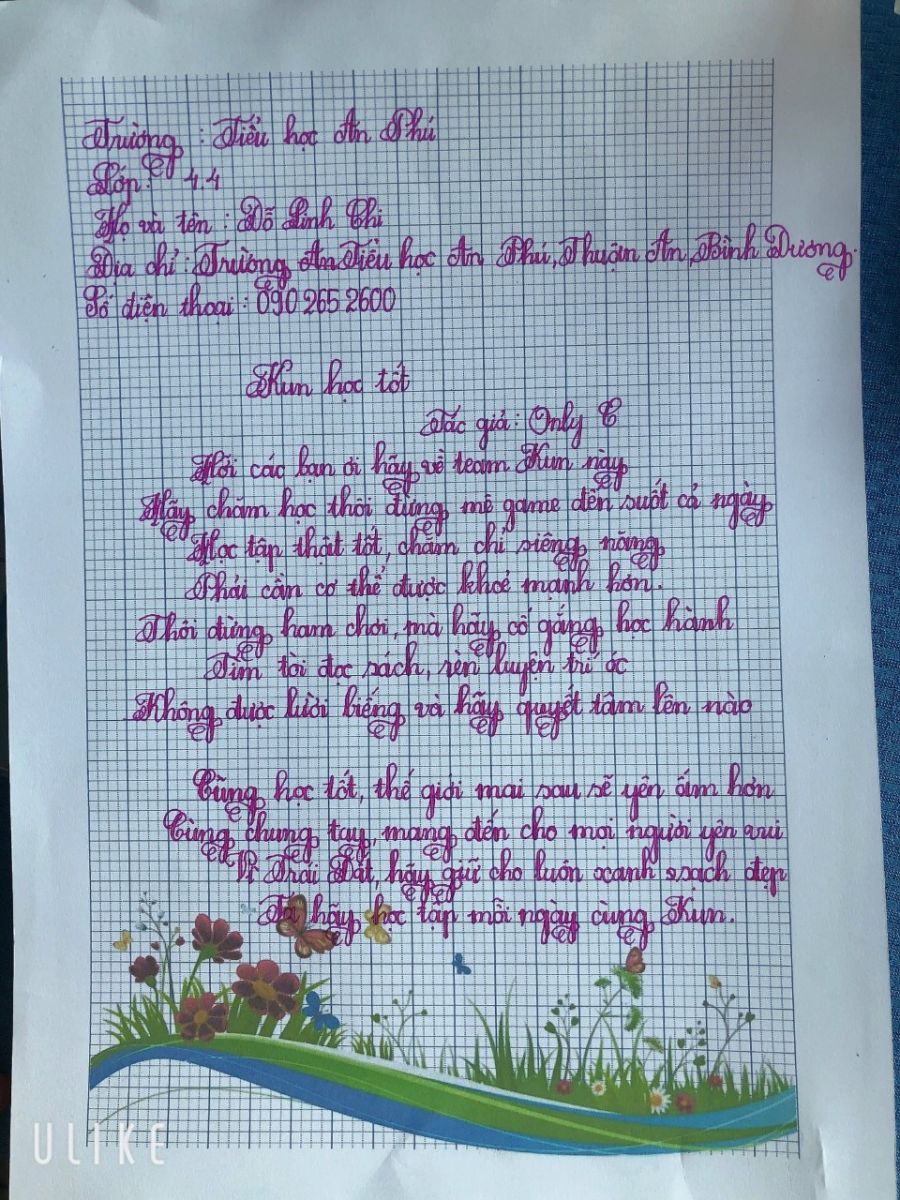 Trường : Tiểu học An Phú
Lớp : 4.4
Họ và tên : Đỗ Linh Chi
Địa chỉ : Trường An Tiểu học An Phú, Thuận An, Bình Dương.
Số điện thoại : 090 265 2600
Kun học tốt
Tác giả : Only C
Hỡi các bạn ơi hãy về team Kun này
Hãy chăm học thôi đừng mê game đến suốt cả ngày
Học tập thật tốt, chăm chỉ siêng năng
Phải cần cơ thể được khoẻ mạnh hơn.
Thôi đừng ham chơi, mà hãy cố gắng học hành
Tìm tòi đọc sách, rèn luyện trí óc
Không được lười biếng và hãy quyết tâm lên nào
Cùng học tốt, thế giới mai sau sẽ yên ấm hơn
Cùng chung tay, mang đến cho mọi người yên vui
Vì Trái Đất, hãy giữ cho luôn xanh sạch đẹp
Ta hãy học tập mỗi ngày cùng Kun.
ULIKE